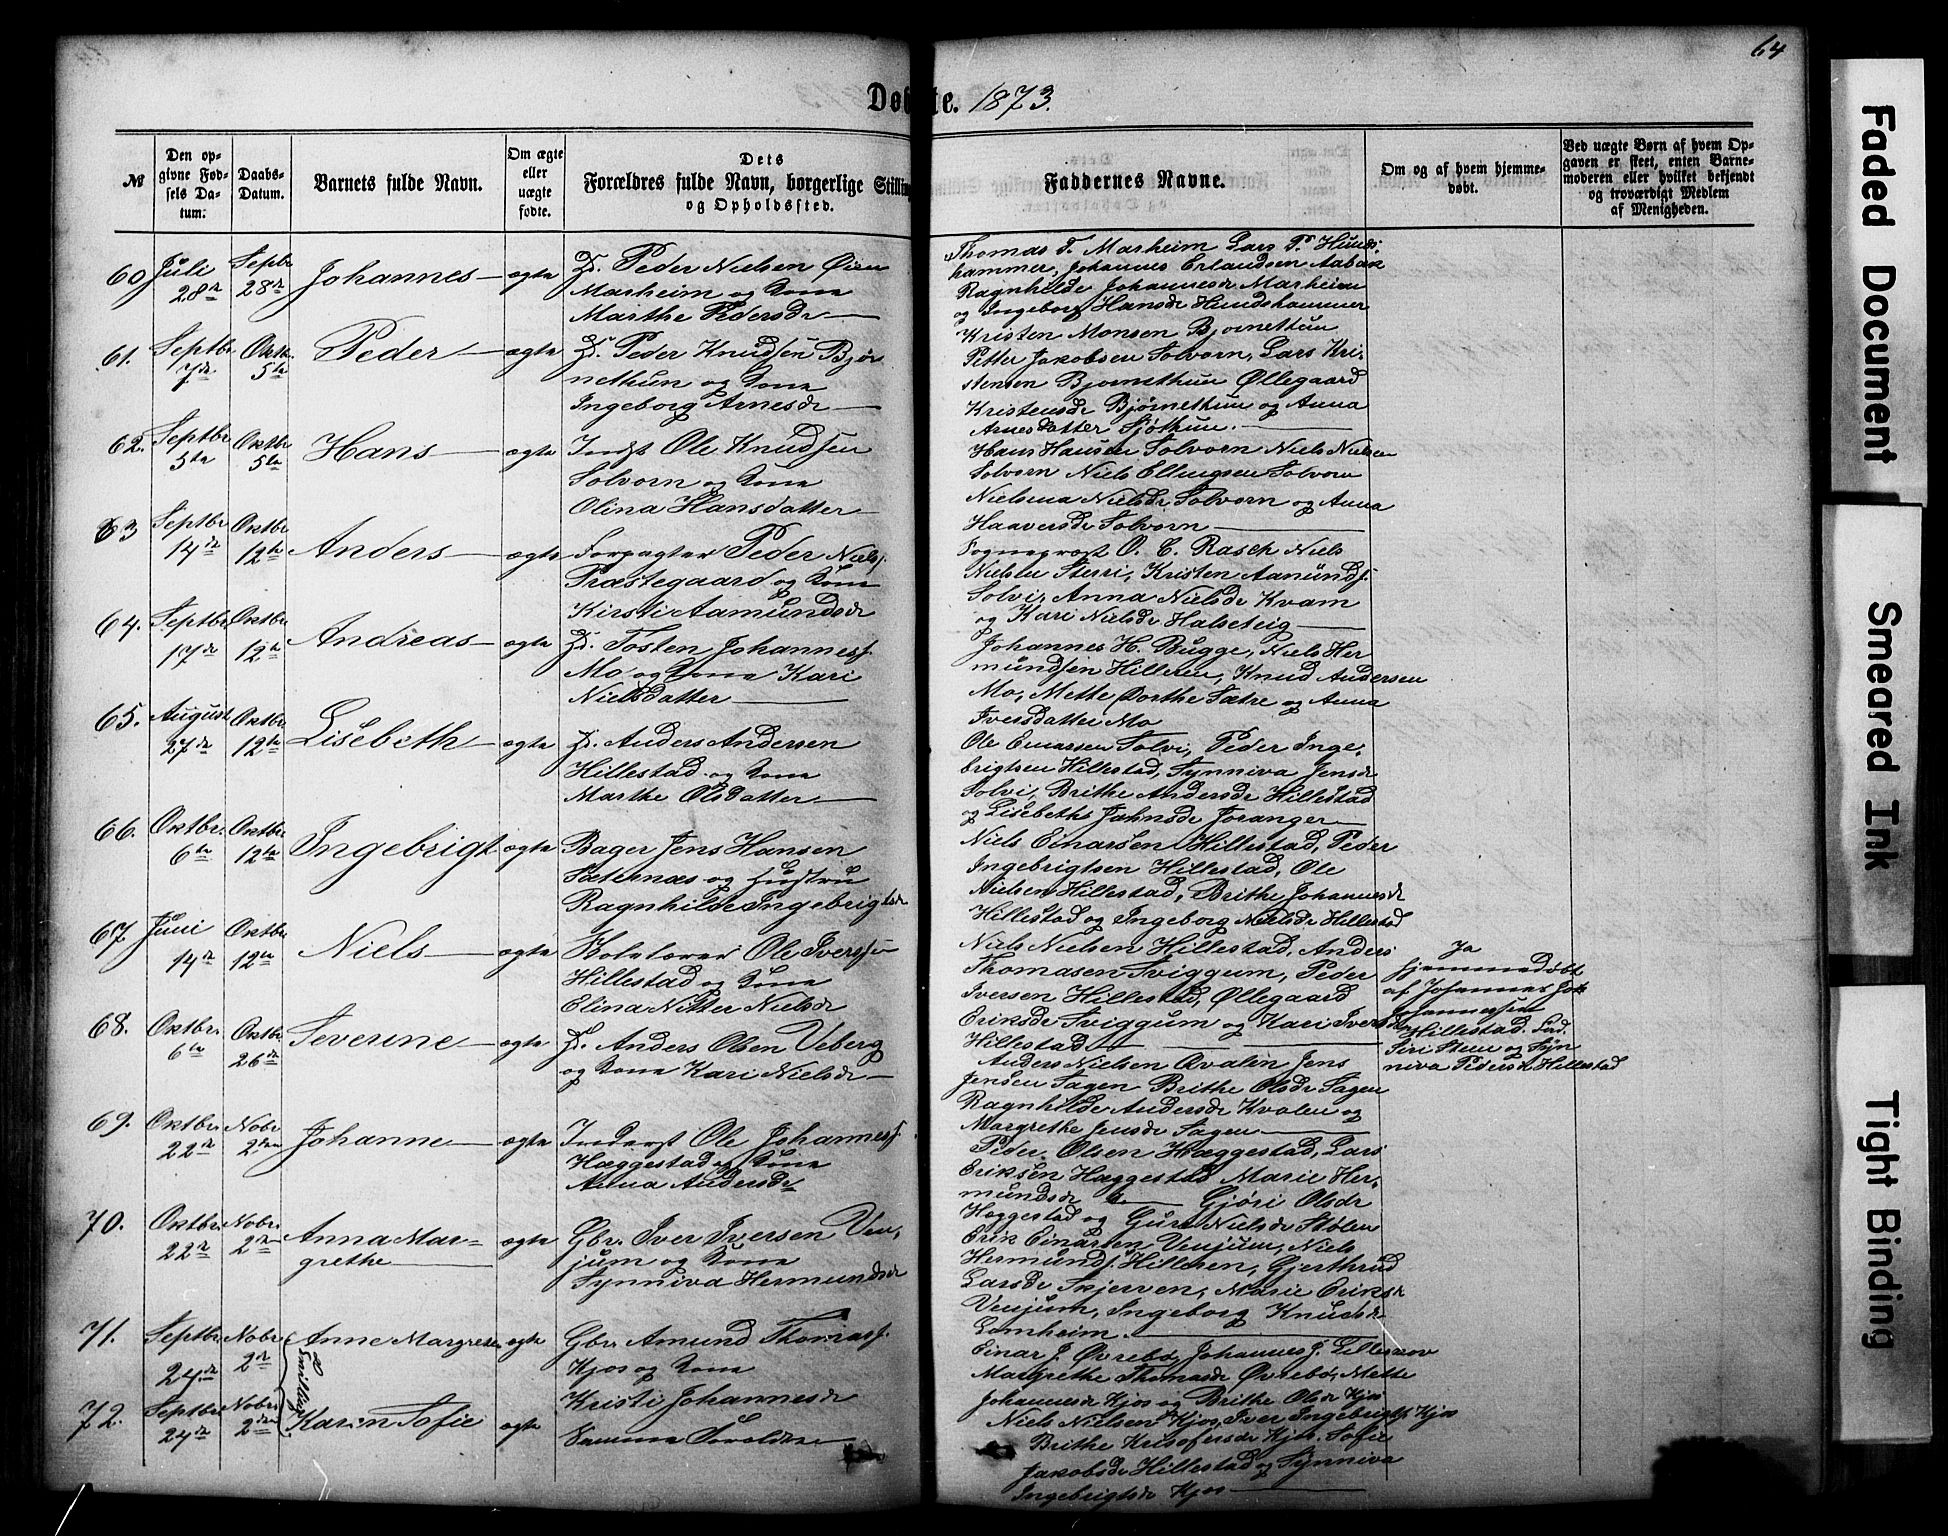 64
Døbte. 1873.
№
Den op-
givne Fød-
sels Da-
tum.
Daabs-
Datum.
Barnets fulde Navn.
Om ægte
eller
uægte
fødte.
Dets
Forældres fulde Navn, borgerlige Stilling
og Opholdssted.
Faddernes Navne.
Om og af hvem hjemme-
døbt.
Ved uægte Børn af hvem Op-
gaven er skeet, enten Barne-
moderen eller hvilket bekjendt
og troværdigt Medlem
af Menigheden.
60 Juli 28de Septbr 28de Johannes ægte
Peder Nielsen Øien
Marheim og Kone
Marthe Pedersdr
Thomas T. Marheim Lars P. Hunds-
hammer, Johannes Erlandsen Aabak
Ragnhilde Johannesdr Marheim
og Ingeborg Hansdr Hundshammer
61. Septbr 7de Oktbr 5te Peder ægte
Peder Knudsen Bjør
nethun og Kone
Ingeborg Arnesdr
Kristen Monsen Bjørnethun
Petter Jakobsen Solvorn, Lars Kri-
stensen Bjørnethun Øllegaard
Kristensdr Bjørnethun og Anna
Arnesdatter Sjøthun.
62. Septbr 5te Oktbr 5te Hans ægte
Indst Ole Knudsen
Solvorn og Kone
Olina Hansdatter
Hans Hansen Solvorn Niels Nielsen
Solvorn Niels Ellingsen Solvorn
Nielsina Nielsdr Solvorn og Anna
Haaversdr Solvorn
63 Septbr 14de Oktbr 12te Anders ægte
Forpagter Peder Niels.
Præstegaard og Kone
Kirsti Aamundsdr
Sognepræst O. C. Rasch Niels
Nielsen Sterri, Kristen Aamunds.
Solvi, Anna Nielsdr Kvam
og Kari Nielsdr Halseteig
64. Septbr 17de Oktbr 12te Andreas ægte
Tosten Johanness.
Mo og Kone Kari
Nielsdatter
Johannes H. Bugge, Niels Her
mundsen Hillesen, Knud Andersen
Mo, Mette Dorthe Sætre og Anna
Iversdatter Mo
65. August 27de Oktbr 12te Lisebeth ægte
Anders Andersen
Hillestad og Kone
Marthe Olsdatter
Ole Einarsen Solvi, Peder Inge-
brigtsen Hillestad, Synniva Jensdr
Solvi, Brithe Andersdr Hillestad
og Lisebeths Jahnsdr Joranger
66. Oktbr. 6te Oktbr 12te Ingebrigt ægte
Bager Jens Hansen
Sæternæs og Hustru
Ragnhilde Ingebrigtsdr
Niels Einarsen Hillestad, Peder
Ingebrigtsen Hillestad, Ole
Nielsen Hillestad, Brithe Johannesdr
Hillestad og Ingeborg Nielsdr Hillestad
67 Juni 14de Oktbr 12te Niels ægte
Ole Iversen
Hillestad og Kone
Elina Nitter Nielsdr
Niels Nielsen Hillestad, Anders
Thomasen Sviggum, Peder
Iversen Hillestad, Øllegaard
Eriksdr Sviggum og Kari Iversdr
Hillestad
Ja
hjemmedøbt
af Johannes
Johannessen
Hillestad. Fad.
Siri Steen og Syn
niva Pedersdr Hillestad
68. Oktbr. 6te Oktbr 26de Severine ægte
Anders Olsen Veberg
og Kone Kari Nielsdr
Anders Nielsen Qvalen Jens
Jensen Sagen Brithe Olsdr Sagen
Ragnhilde Andersdr Kvalen og
Margrethe Jensdr Sagen
69. Oktbr 22de Nobr 2den Johanne ægte
Inderst Ole Johanness.
Hæggestad og Kone
Anna Andersdr
Peder Olsen Hæggestad, Lars
Eriksen Hæggestad Marie Her-
mundsdr Gjøri Olsdr
Hæggestad og Guri Nielsdr Stølen
70. Oktbr 22de Nobr. 2den Anna Mar-
grethe ægte
Gbr. Iver Iversen Ven-
jum og Kone
Synniva Hermundsdr
Erik Einarsen Venjum, Niels
Hermunds. Hillesen, Gjerthrud
Larsdr Skjerven, Marie Eriksdr
Venjum, Ingeborg Knudsdr
Lomheim.
71. Septbr 24de Nobr 2de Anne Margrete ægte
Tvillinger
Gbr. Amund Thomass.
Kjos og Kone
Kristi Johannesdr
Einar J. Øvrebø, Johannes J. Lillesæov
Margrethe Thomasdr Øvrebø, Mette
Johannesdr Kjos og Brithe Olsdr Kjos
72. Septbr 24de Nobr. 2den Karin Sofie ægte
Samme Foreldre
Niels Nielsen Kjos, Iver Ingebrigts. Kjos
Brithe Kristofersdr Kjos. Sofie
Jakobsdr Hillestad og Synniva
Ingebrigtsdr Kjos
Faded Document
Smeared Ink
Tight Binding